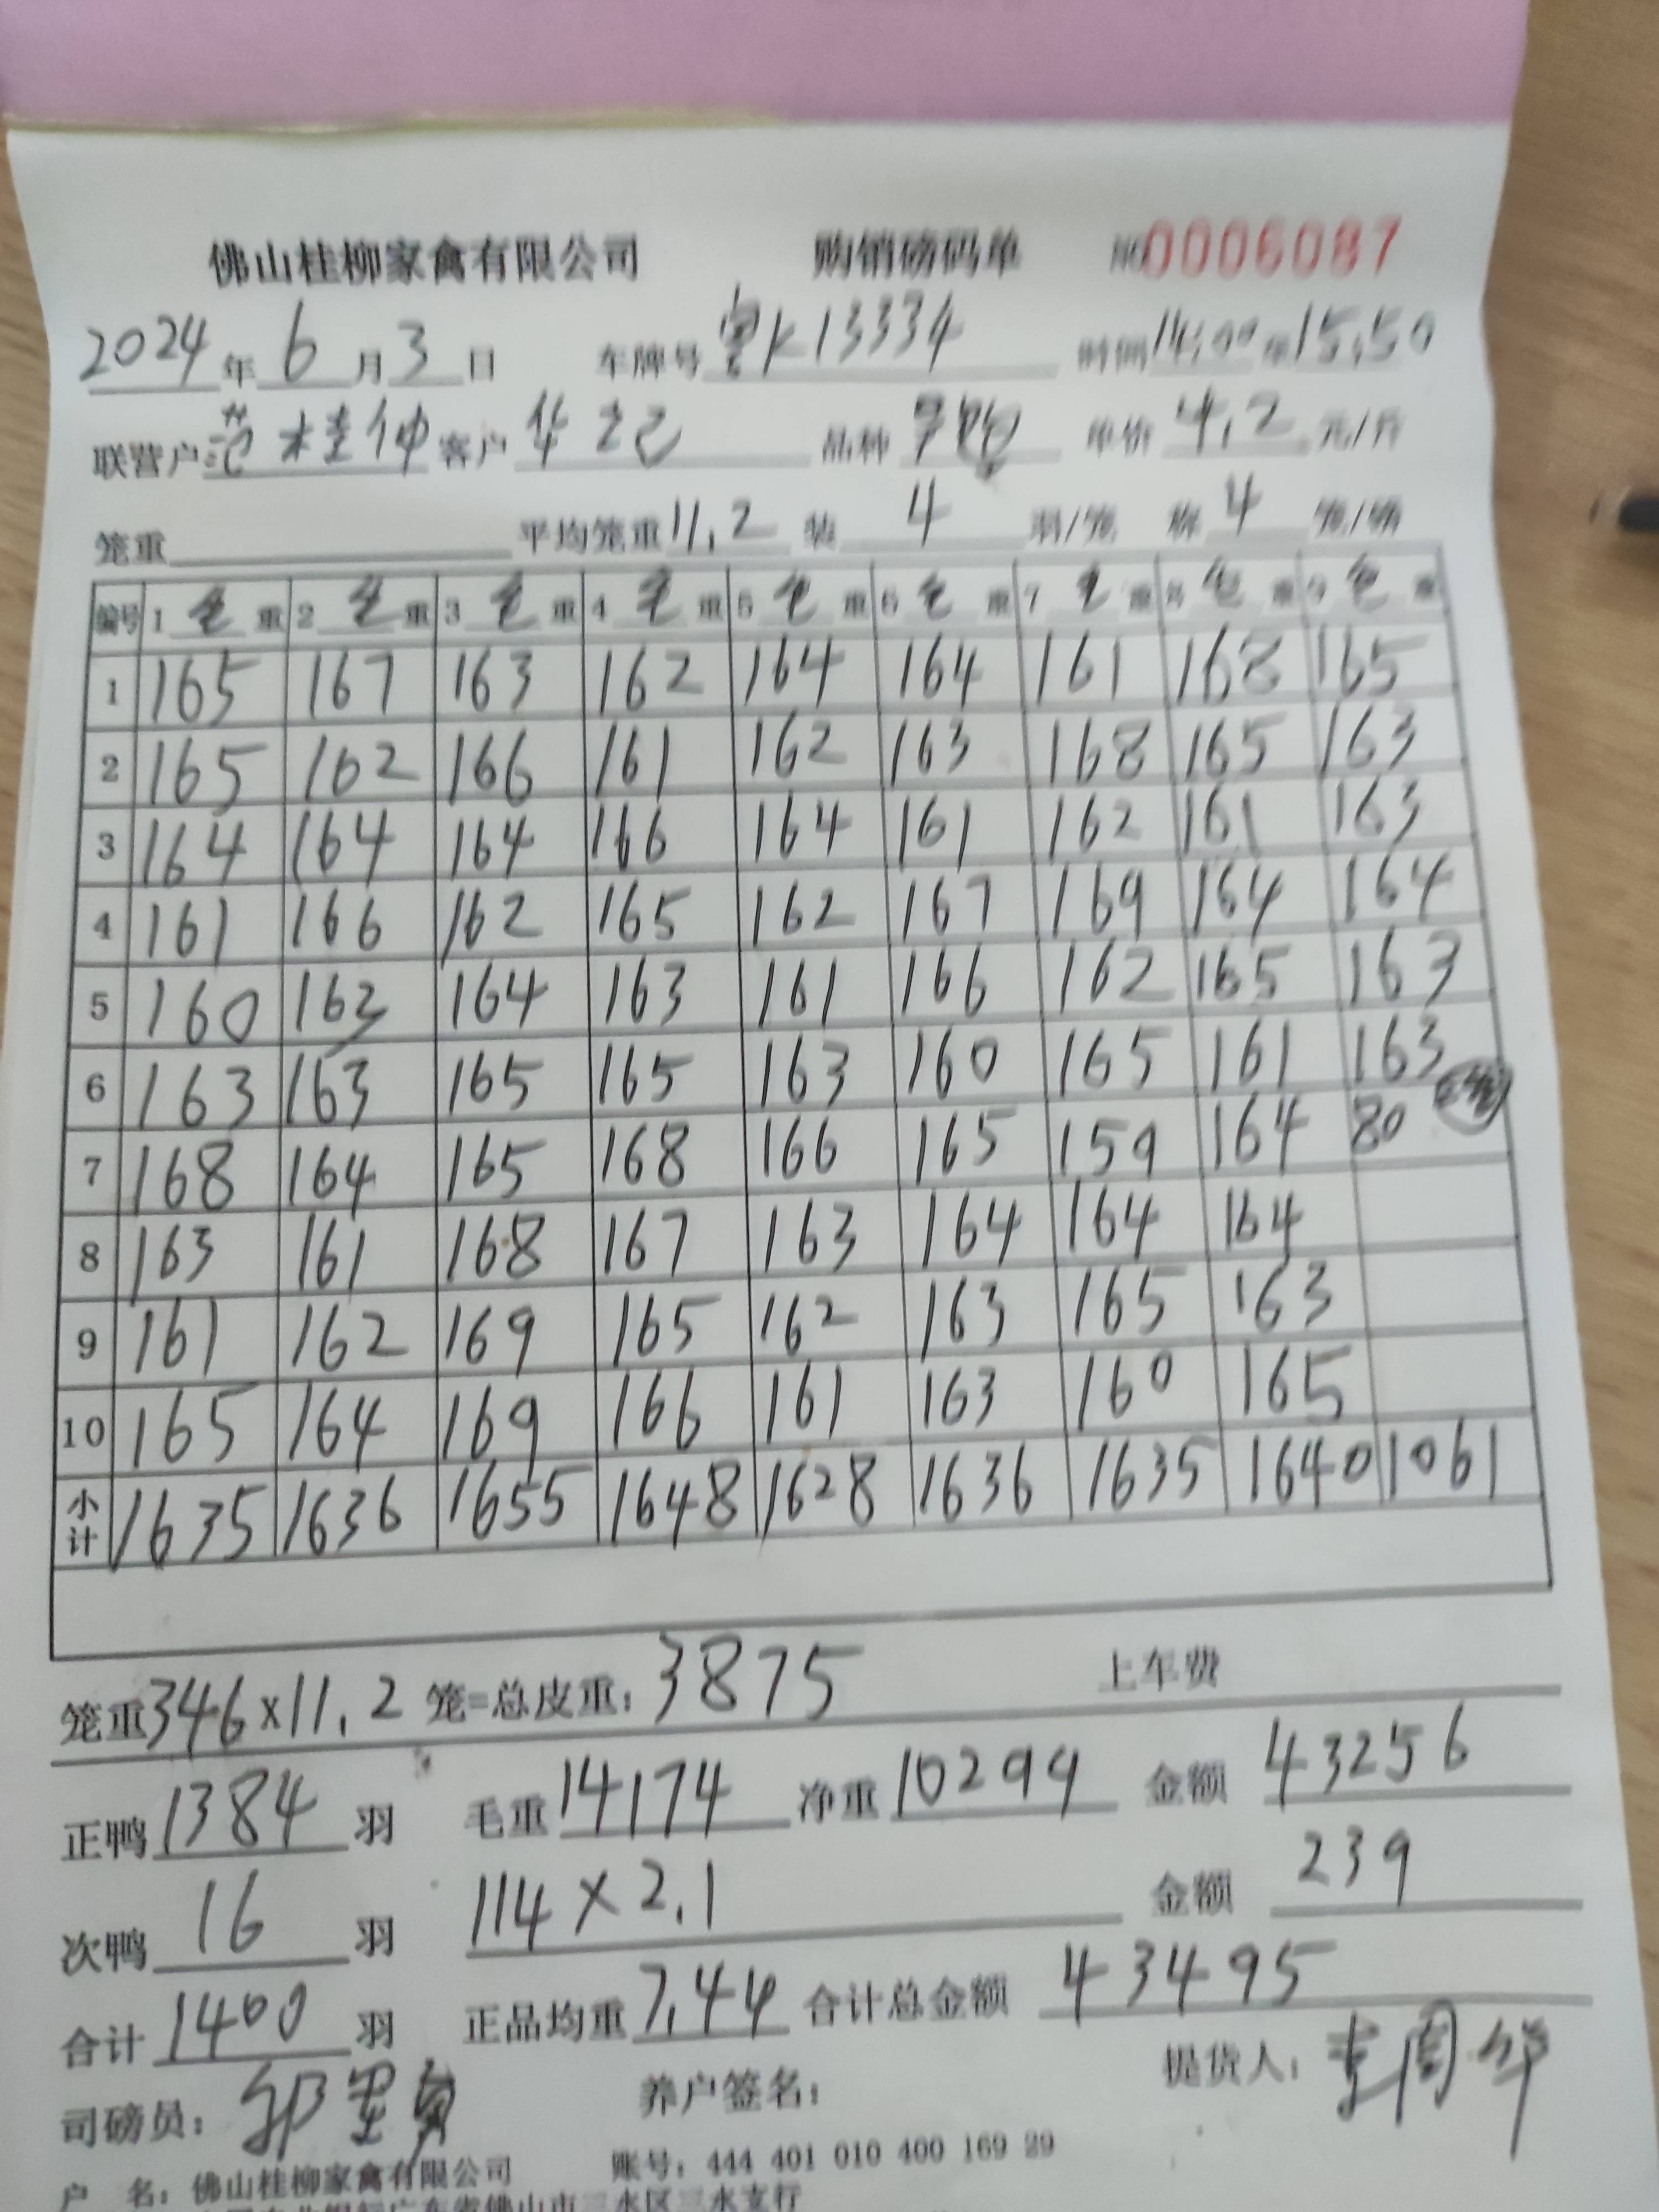 佛山桂柳家禽有限公司 购销磅码单 №0006087
2024年6月3日 车牌号粤K13334 时间14:00至15:50
联营户范桂仲 客户华记 品种 单价4.2元/斤
笼重 平均笼重11.2 装4羽/笼 称4笼/磅
编号 1毛重 2毛重 3毛重 4毛重 5毛重 6毛重 7毛重 8毛重 9毛重
1 165 167 163 162 164 164 161 168 165
2 165 162 166 161 162 163 168 165 163
3 164 164 164 166 164 161 162 161 163
4 161 166 162 165 162 167 169 164 164
5 160 163 164 163 161 166 162 165 163
6 163 163 165 165 163 160 165 161 163
7 168 164 165 168 166 165 159 164 80
8 163 161 168 167 163 164 164 164
9 161 162 169 165 162 163 165 163
10 165 164 169 166 161 163 160 165
小计 1635 1636 1655 1648 1628 1636 1635 1640 1061
笼重346×11.2笼=总皮重:3875 上车费
正鸭1384羽 毛重14174 净重10299 金额43256
次鸭16羽 114×2.1 金额239
合计1400羽 正品均重7.44 合计总金额43495
司磅员: 养户签名: 提货人:
户 名:佛山桂柳家禽有限公司 账号:444 401 010 400 169 29
佛山市三水区三水支行